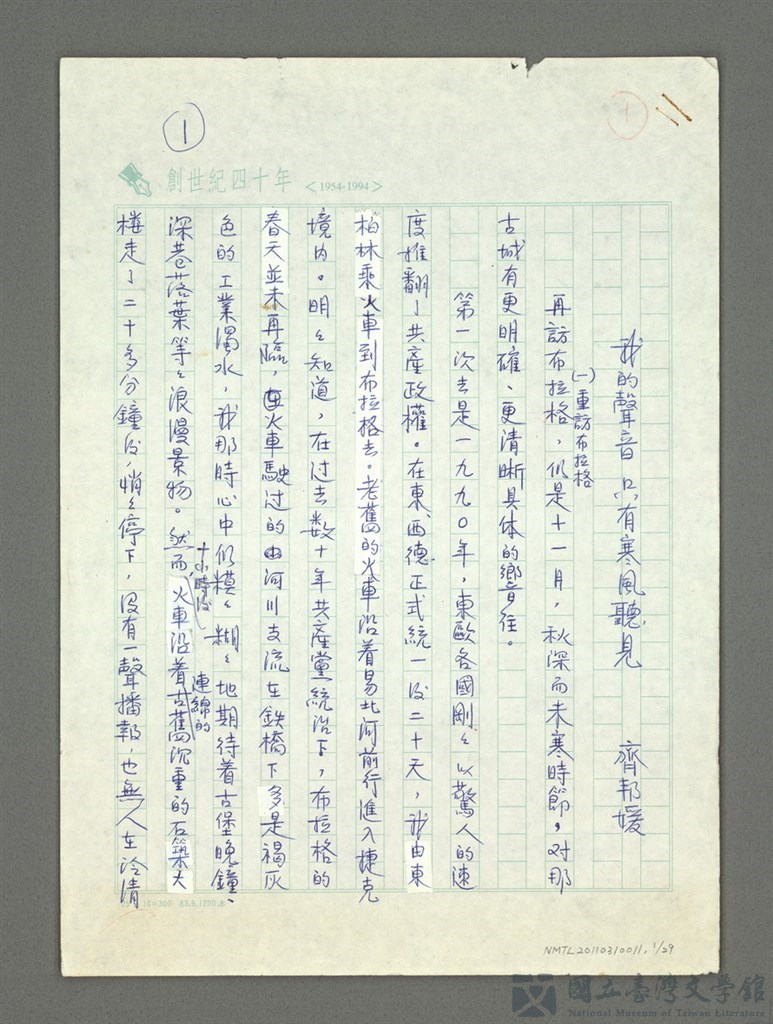 1
1
創世紀四十年 <1954-1994>
我的聲音只有寒風聽見 齊邦媛
(一)重訪布拉格
再訪布拉格,仍是十一月,秋深而未寒時節,对那
古城有更明確、更清晰具体的嚮往。
第一次去是一九九〇年,東歐各國剛々以驚人的速
度推翻了共產政權。在東、西德正式統一後二十天,我由東
柏林乘火車到布拉格去。老舊的火車沿着易北河前行進入捷克
境內。明々知道,在过去数十年共產黨統治下,布拉格的
春天並未再臨,在火車駛过的由河川支流在鉄橋下多是褐灰
色的工業濁水,我那時心中仍模々糊々地期待着古堡晚鐘、
深巷落葉等々浪漫景物。然而,十小時後火車沿着古舊連綿的沉重的石築大
樓走了二十多分鐘後,悄々停下,沒有一聲播報,也無人在冷清
10×300 83.9.1200本
NMTL20110310011, 1/29
國立臺灣文學館
National Museum of Taiwan Literature